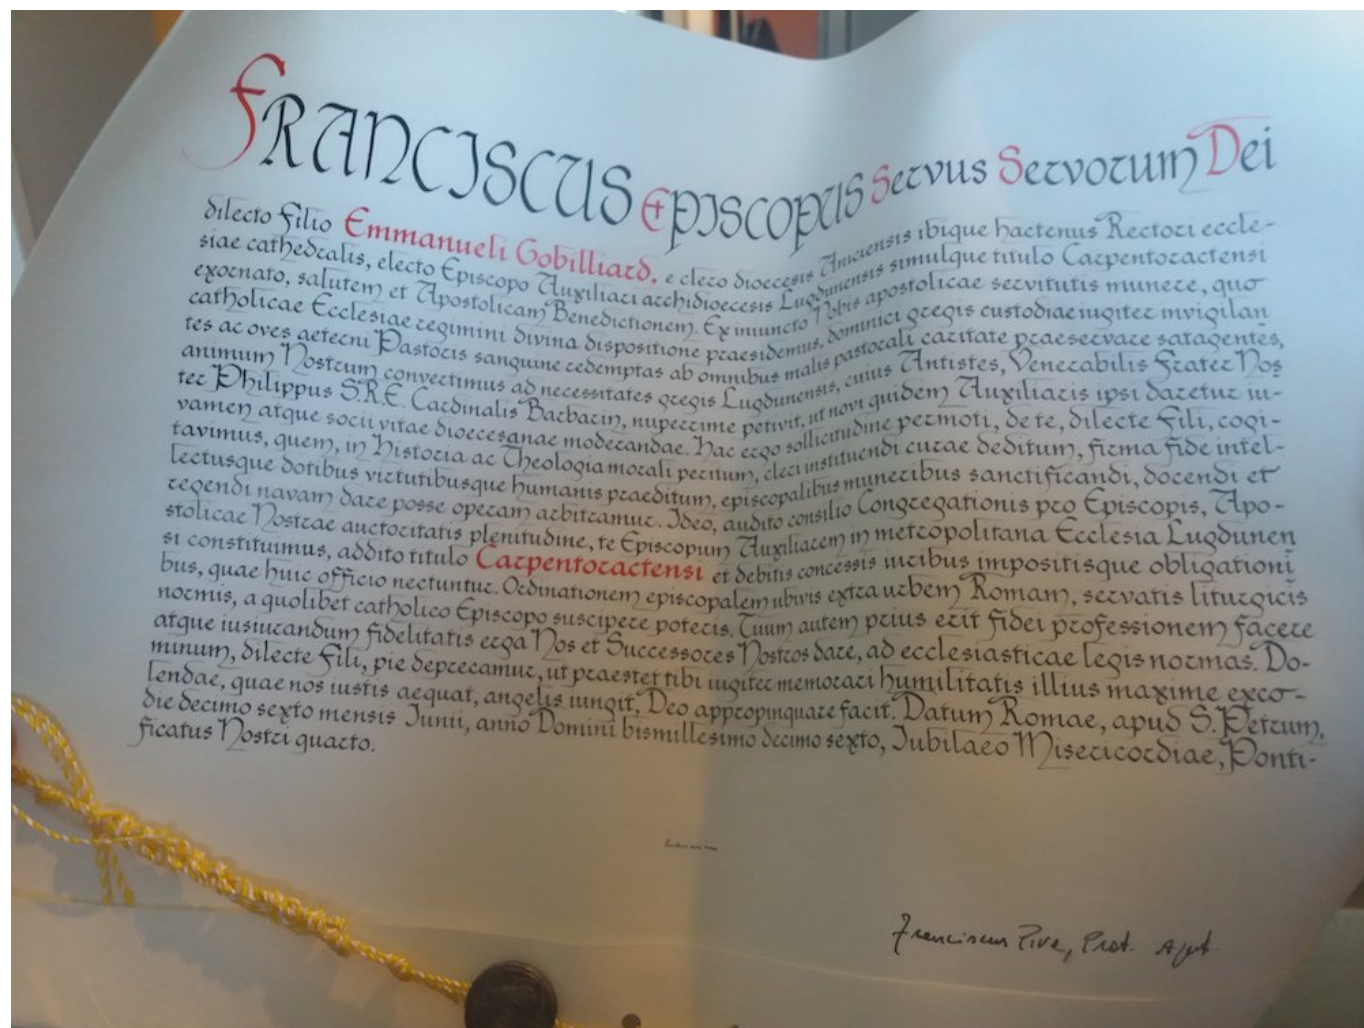 FRANCISCUS EPISCOPUS Servus Servorum Dei
dilecto Filio Emmanueli Gobilliard, e clero dioecesis Aniciensis ibique hactenus Rectori eccle-
siae cathedralis, electo Episcopo Auxiliari archidioecesis Lugdunensis simulque titulo Carpentoractensi
exornato, salutem et Apostolicam Benedictionem. Ex iniuncto Nobis apostolicae servitutis munere, quo
catholicae Ecclesiae regimini divina dispositione praesidemus, dominici gregis custodiae iugiter invigilan
tes ac oves aeterni Pastoris sanguine redemptas ab omnibus malis pastorali caritate praeservare satagentes,
animum Nostrum convertimus ad necessitates gregis Lugdunensis, cuius Antistes, Venerabilis Frater Nos
ter Philippus S.R.E. Cardinalis Barbarin, nuperrime petivit, ut novi quidem Auxiliaris ipsi daretur iu-
vamen atque socii vitae dioecesanae moderandae. Hac ergo sollicitudine permoti, de te, dilecte Fili, cogi-
tavimus, quem, in Historia ac Theologia morali peritum, cleri instituendi curae deditum, firma fide intel-
lectusque dotibus virtutibusque humanis praeditum, episcopalibus muneribus sanctificandi, docendi et
regendi navam dare posse operam arbitramur. Ideo, audito consilio Congregationis pro Episcopis, Apo-
stolicae Nostrae auctoritatis plenitudine, te Episcopum Auxiliarem in metropolitana Ecclesia Lugdunen
si constituimus, addito titulo Carpentoractensi et debitis concessis iuribus impositisque obligationi
bus, quae huic officio nectuntur. Ordinationem episcopalem ubivis extra urbem Romam, servatis liturgicis
normis, a quolibet catholico Episcopo suscipere poteris. Tuum autem prius erit fidei professionem facere
atque iusiurandum fidelitatis erga Nos et Successores Nostros dare, ad ecclesiasticae legis normas. Do-
minum, dilecte Fili, pie deprecamur, ut praestet tibi iugiter memorari humilitatis illius maxime exco-
lendae, quae nos iustis aequat, angelis iungit, Deo appropinquare facit. Datum Romae, apud S. Petrum,
die decimo sexto mensis Iunii, anno Domini bismillesimo decimo sexto, Iubilaeo Misericordiae, Ponti-
ficatus Nostri quarto.
Franciscus Piva, Prot. Apt.